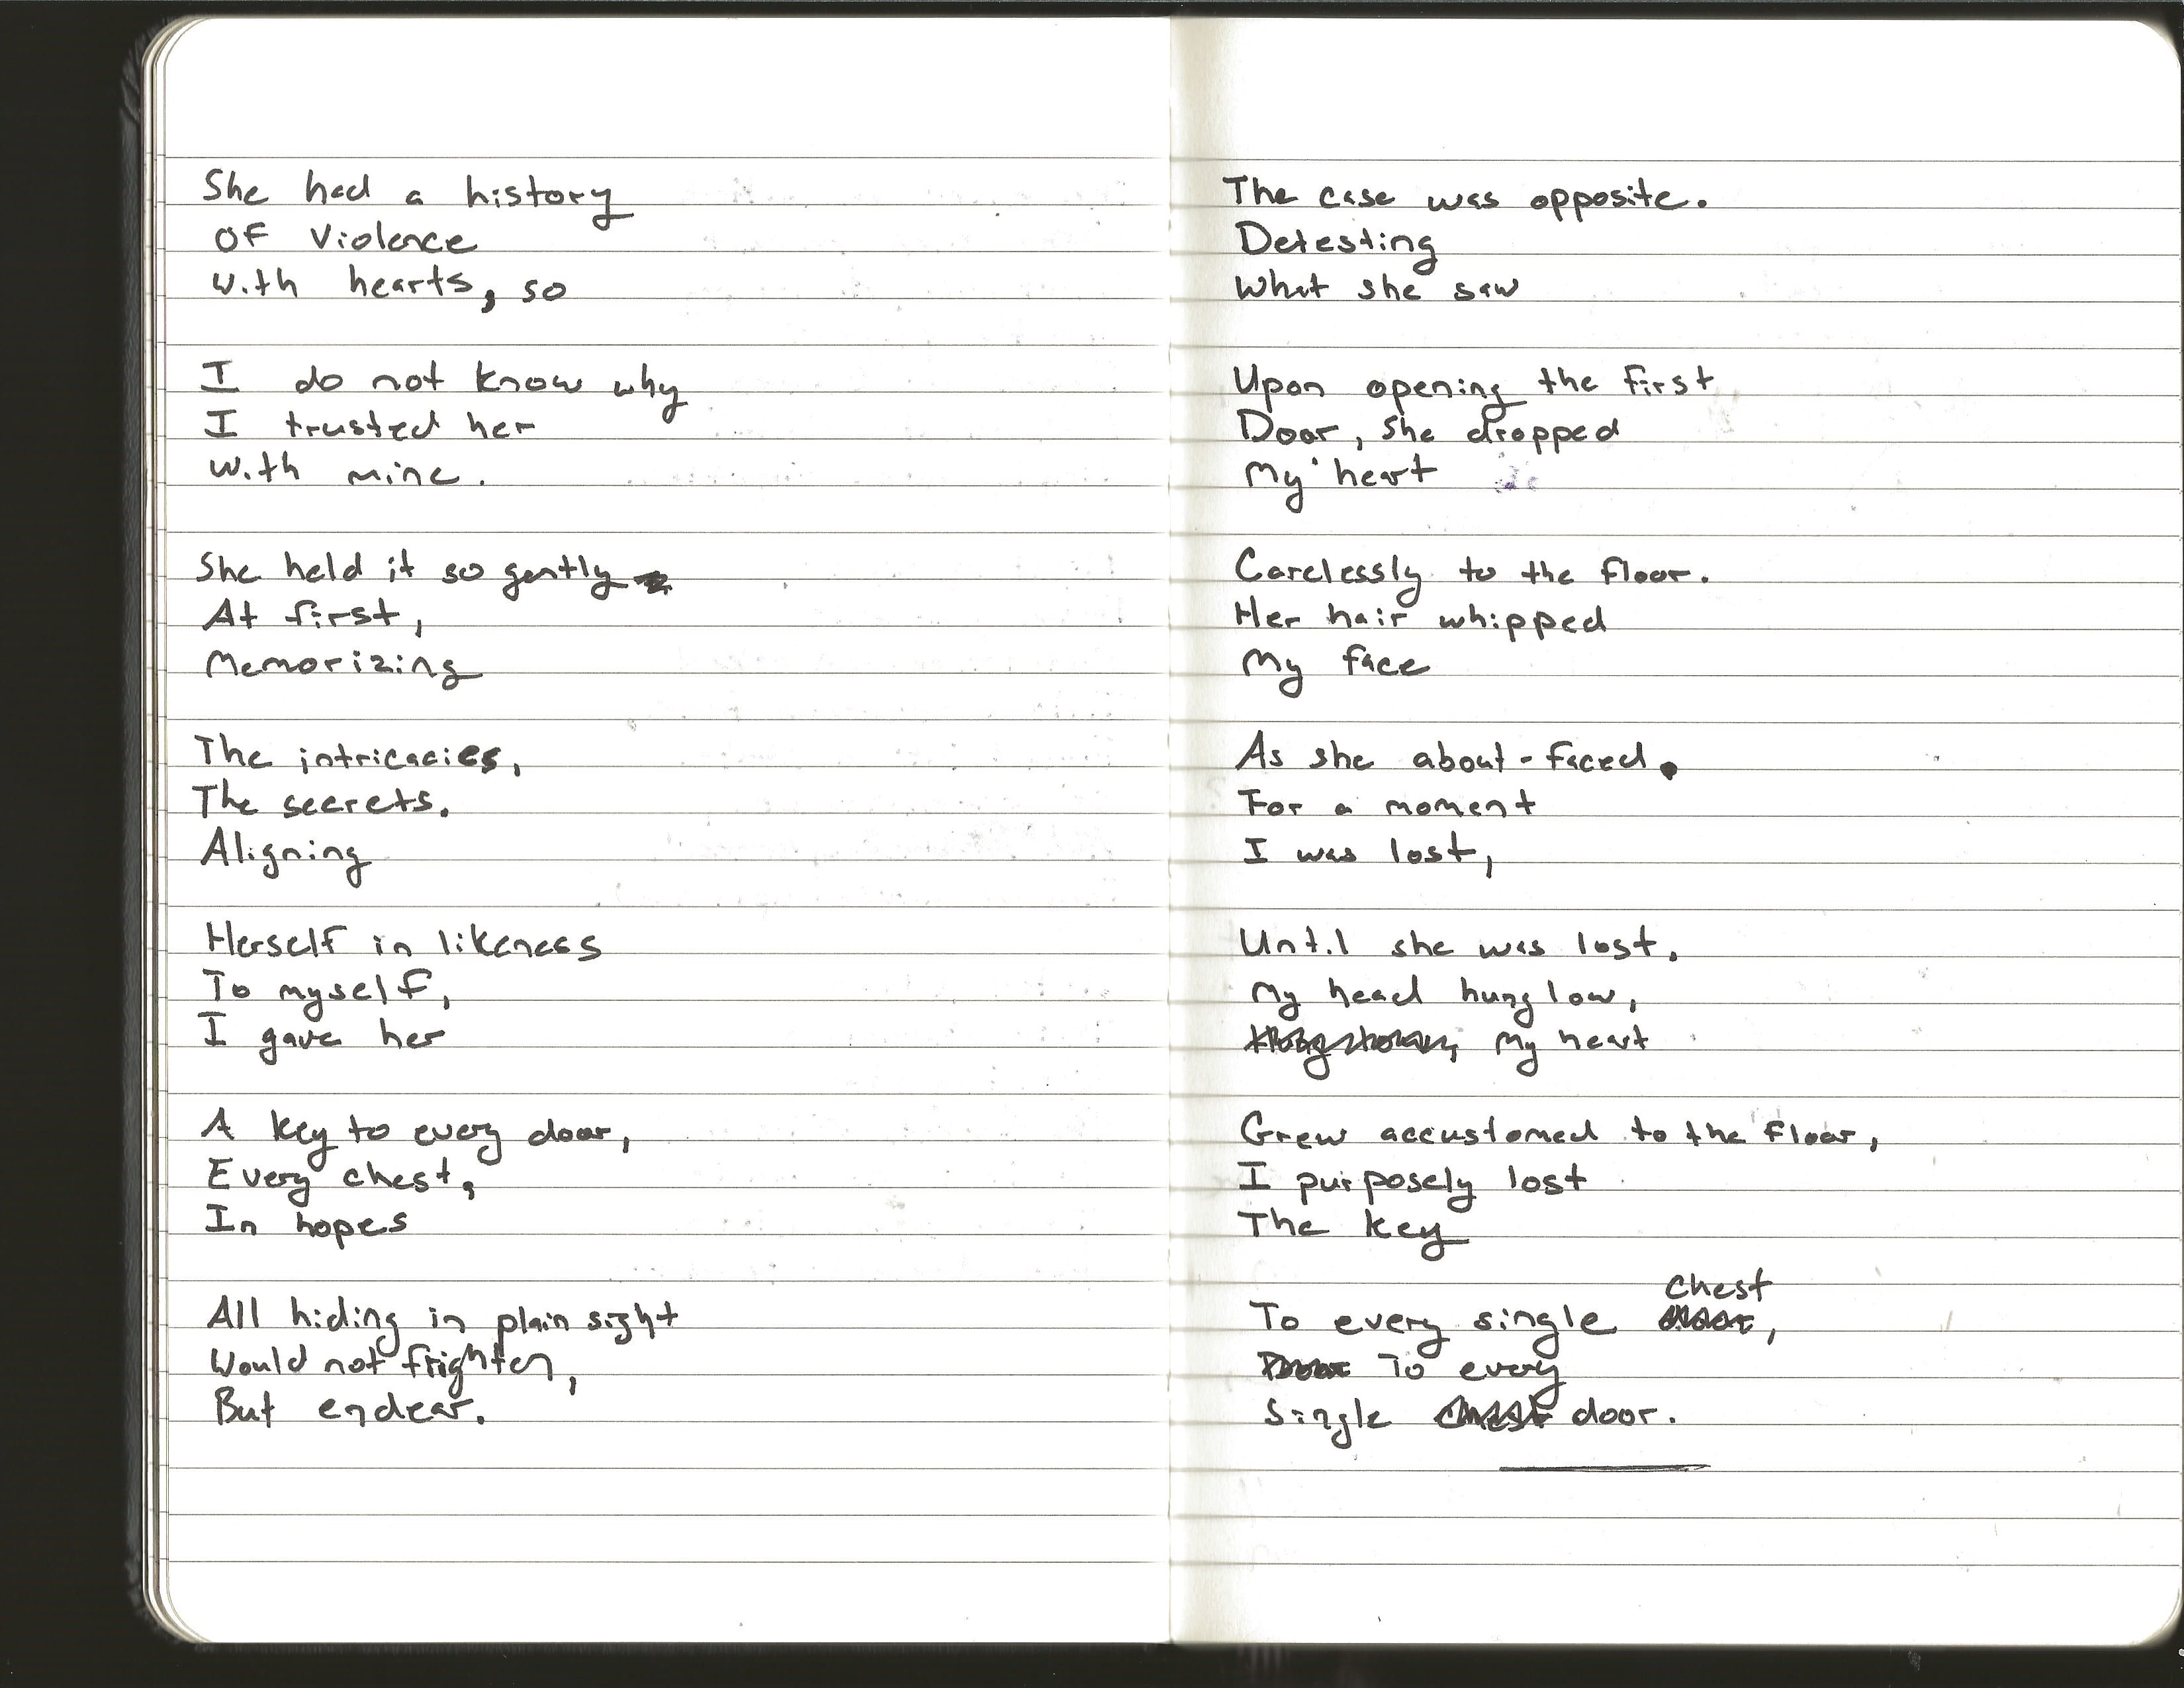 She had a history
Of Violence
with hearts, so
I do not know why
I trusted her
with mine.
She held it so gently
At first,
Memorizing
The intricacies,
The secrets.
Aligning
Herself in likeness
To myself,
I gave her
A key to every door,
Every chest,
In hopes
All hiding in plain sight
Would not frighten,
But endear.
The case was opposite.
Detesting
What she saw
Upon opening the first
Door, she dropped
My heart
Carelessly to the floor.
Her hair whipped
My face
As she about-faced.
For a moment
I was lost,
Until she was lost.
My head hung low,
My heart
Grew accustomed to the floor,
I purposely lost
The key
To every single chest,
To every
Single door.